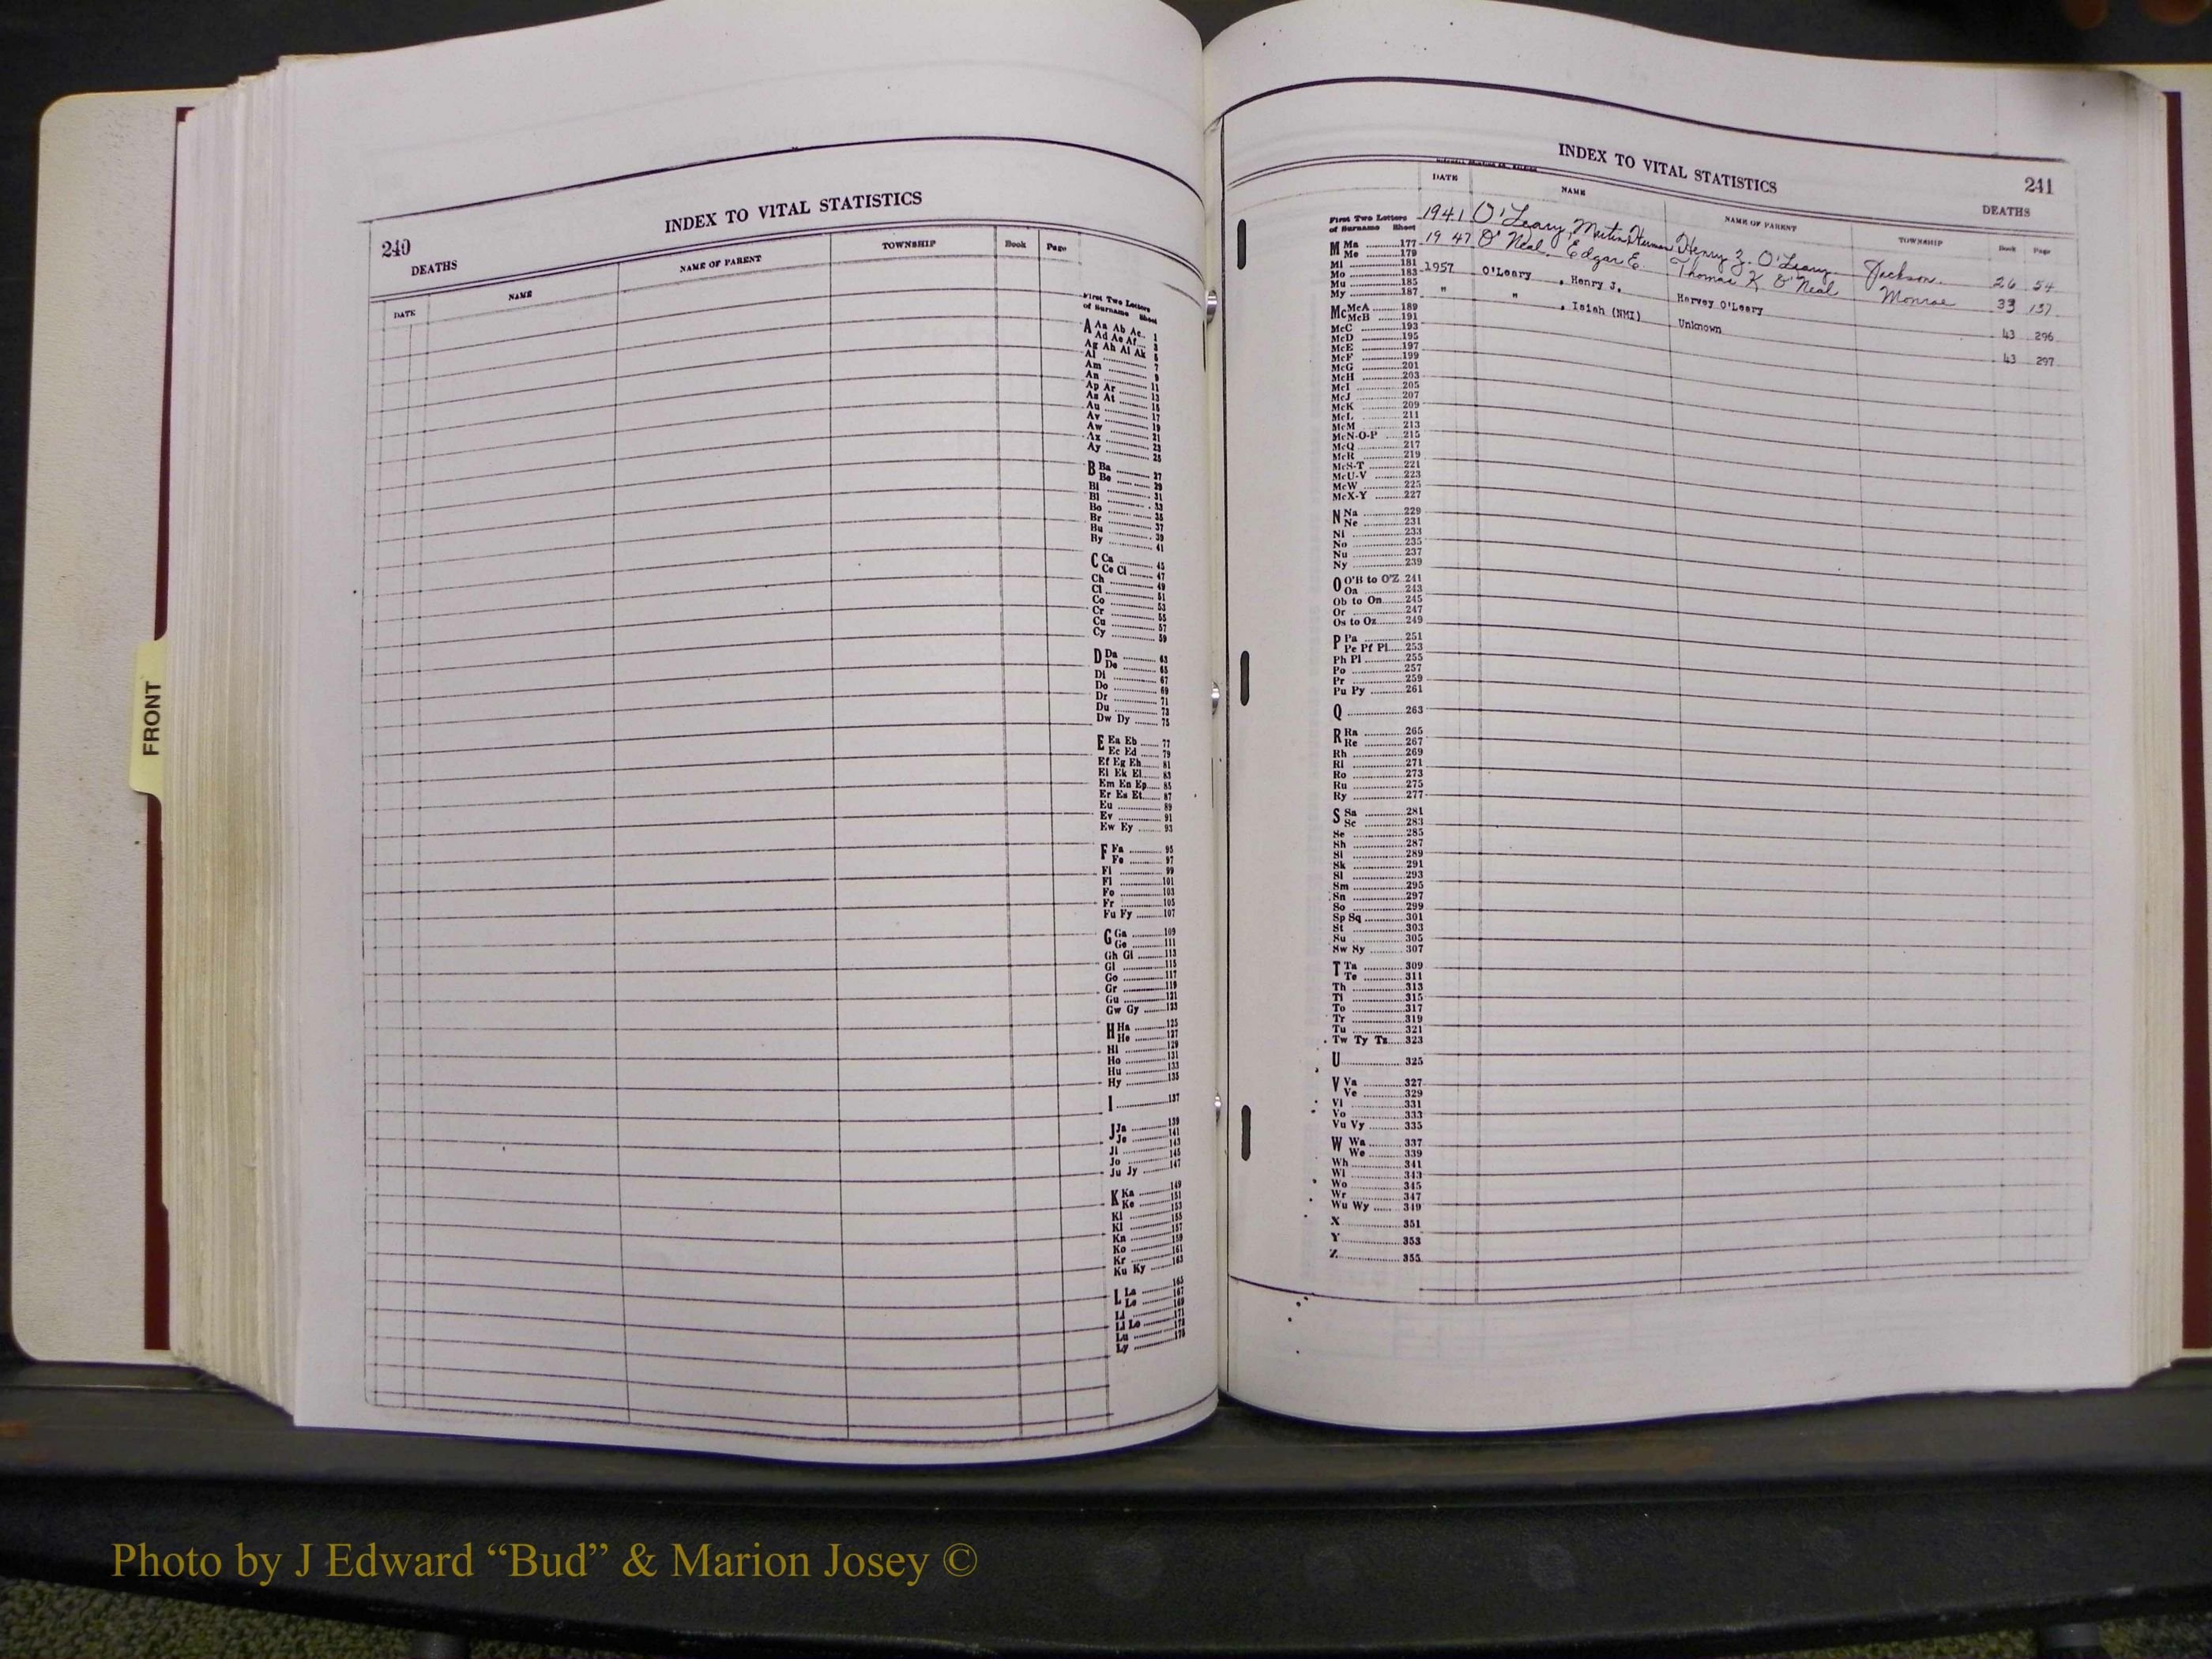 INDEX TO VITAL STATISTICS
240
DEATHS
DATE NAME NAME OF PARENT TOWNSHIP Book Page
First Two Letters
of Surname Sheet
A Aa Ab Ac 1
Ad Ae Af 3
Ag Ah Ai Ak 5
Al 7
Am 9
An 11
Ap Ar 13
As At 15
Au 17
Av 19
Aw 21
Ax 23
Ay 25
B Ba 27
Be 29
Bi 31
Bl 33
Bo 35
Br 37
Bu 39
By 41
C Ca 45
Ce Ci 47
Ch 49
Cl 51
Co 53
Cr 55
Cu 57
Cy 59
D Da 63
De 65
Di 67
Do 69
Dr 71
Du 73
Dw Dy 75
E Ea Eb 77
Ec Ed 79
Ef Eg Eh 81
Ei Ek El 83
Em En Ep 85
Er Es Et 87
Eu 89
Ev 91
Ew Ey 93
F Fa 95
Fe 97
Fi 99
Fl 101
Fo 103
Fr 105
Fu Fy 107
G Ga 109
Ge 111
Gh Gi 113
Gl 115
Go 117
Gr 119
Gu 121
Gw Gy 123
H Ha 125
He 127
Hi 129
Ho 131
Hu 133
Hy 135
I 137
J Ja 139
Je 141
Ji 143
Jo 145
Ju Jy 147
K Ka 149
Ke 151
Ki 153
Kl 155
Kn 157
Ko 159
Kr 161
Ku Ky 163
L La 165
Le 167
Li 169
Ll Lo 171
Lu 173
Ly 175
INDEX TO VITAL STATISTICS
241
DEATHS
DATE NAME NAME OF PARENT TOWNSHIP Book Page
1941 O'Leary, Martin Herman Henry Z. O'Leary Jackson. 26 54
1947 O'Neal, Edgar E. Thomas K O'Neal Monroe 33 137
1957 O'Leary , Henry J. Harvey O'Leary 43 296
" " , Isiah (NMI) Unknown 43 297
First Two Letters
of Surname Sheet
M Ma 177
Me 179
Mi 181
Mo 183
Mu 185
My 187
Mc McA 189
McB 191
McC 193
McD 195
McE 197
McF 199
McG 201
McH 203
McI 205
McJ 207
McK 209
McL 211
McM 213
McN-O-P 215
McQ 217
McR 219
McS-T 221
McU-V 223
McW 225
McX-Y 227
N Na 229
Ne 231
Ni 233
No 235
Nu 237
Ny 239
O O'B to O'Z 241
Oa 243
Ob to On 245
Or 247
Os to Oz 249
P Pa 251
Pe Pf Pl 253
Ph Pi 255
Po 257
Pr 259
Pu Py 261
Q 263
R Ra 265
Re 267
Rh 269
Ri 271
Ro 273
Ru 275
Ry 277
S Sa 281
Sc 283
Se 285
Sh 287
Si 289
Sk 291
Sl 293
Sm 295
Sn 297
So 299
Sp Sq 301
St 303
Su 305
Sw Sy 307
T Ta 309
Te 311
Th 313
Ti 315
To 317
Tr 319
Tu 321
Tw Ty Tz 323
U 325
V Va 327
Ve 329
Vi 331
Vo 333
Vu Vy 335
W Wa 337
We 339
Wh 341
Wi 343
Wo 345
Wr 347
Wu Wy 349
X 351
Y 353
Z 355
FRONT
Photo by J Edward “Bud” & Marion Josey ©